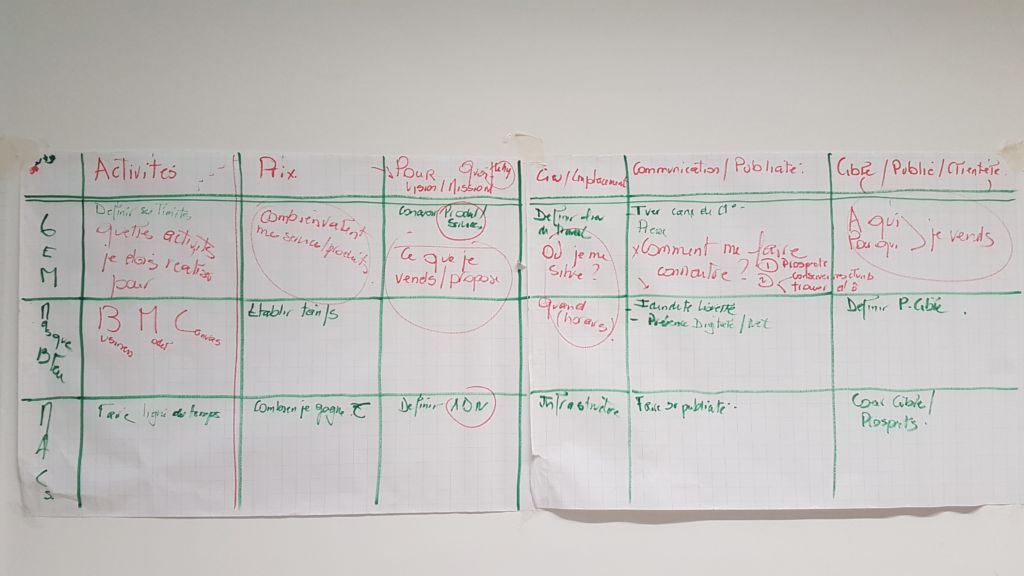 Activités
Prix
Pour quoi
Vision/Mission
Lieu/Emplacement
Communication/Publicité.
Cible/Public/Clientèle
Définir ses limites
quelles activités
je dois réaliser
pour
Combien vallent
mes services/produits
Concevoir Produit/
Services
Ce que je
vends/propose
Définir
du travail
Où je me
situe ?
x Comment me faire
connaître ?
① Prospecte
②
trouver
A qui
Pourqui
je vends
G
E
M
Masque
Bleu
B M C anvas
usiness odel
Etablir tarifs
Quand
(horaires)
- Identité
- Présence Digitale/Net
Définir P. Cible.
M
A
Cs
Faire ligne du temps
Combien je gagne €
Définir ADN
Infrastructure
Faire sa publicité.
Cible/
Prospects.